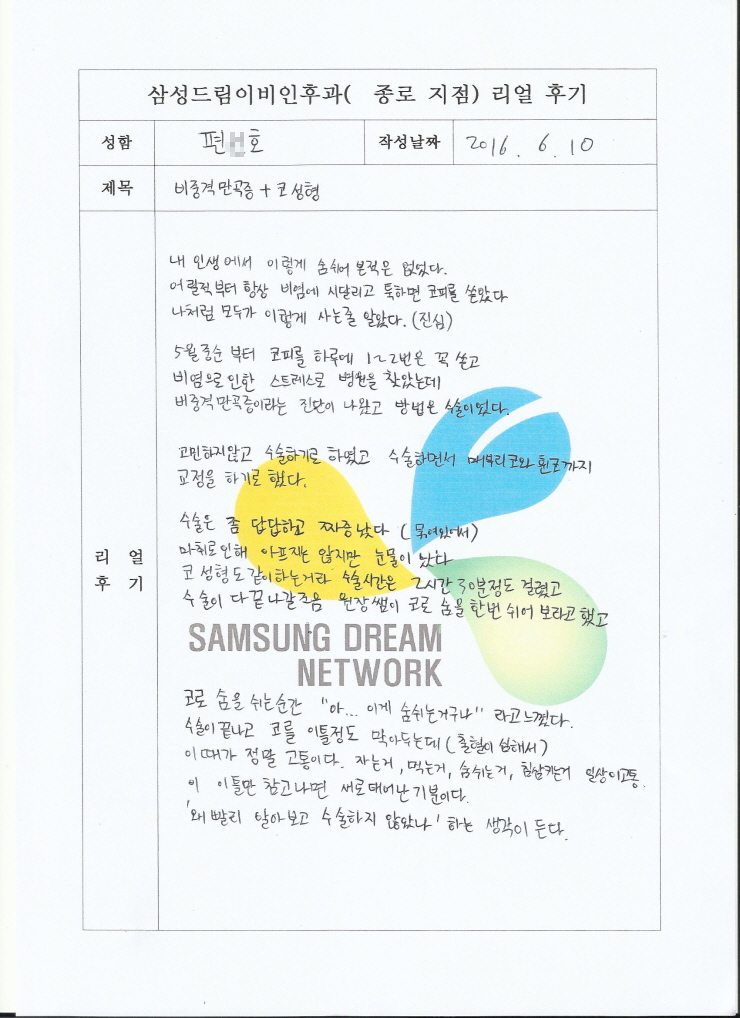 삼성드림이비인후과( 종로 지점) 리얼 후기
성함 편 호 작성날짜 2016. 6. 10
제목 비중격만곡증 + 코성형
내 인생에서 이렇게 숨쉬어 본적은 없었다.
어릴적부터 항상 비염에 시달리고 툭하면 코피를 쏟았다
나처럼 모두가 이렇게 사는줄 알았다. (진심)
5월중순 부터 코피를 하루에 1~2번은 꼭 쏟고
비염으로인한 스트레스로 병원을 찾았는데
비중격만곡증이라는 진단이 나왔고 방법은 수술이었다.
고민하지않고 수술하기로 하였고 수술하면서 매부리코와 휜코까지
교정을 하기로 했다.
수술은 좀 답답하고 짜증났다 (묶여있어서)
마취로인해 아프지는 않지만 눈물이 났다
코 성형도같이하는거라 수술시간은 2시간 30분정도 걸렸고
리 얼
후 기
수술이 다끝나갈즈음 원장쌤이 코로 숨을 한번 쉬어 보라고 했고
SAMSUNG DREAM
NETWORK
코로 숨을 쉬는순간 "아... 이게 숨쉬는거구나" 라고느꼈다.
수술이끝나고 코를 이틀정도 막아두는데 (출혈이 심해서)
이때가 정말 고통이다. 자는거, 먹는거, 숨쉬는거, 침삼키는거 일상이고통.
이 이틀만 참고나면 새로태어난기분이다.
'왜 빨리 알아보고 수술하지 않았나' 하는 생각이 든다.